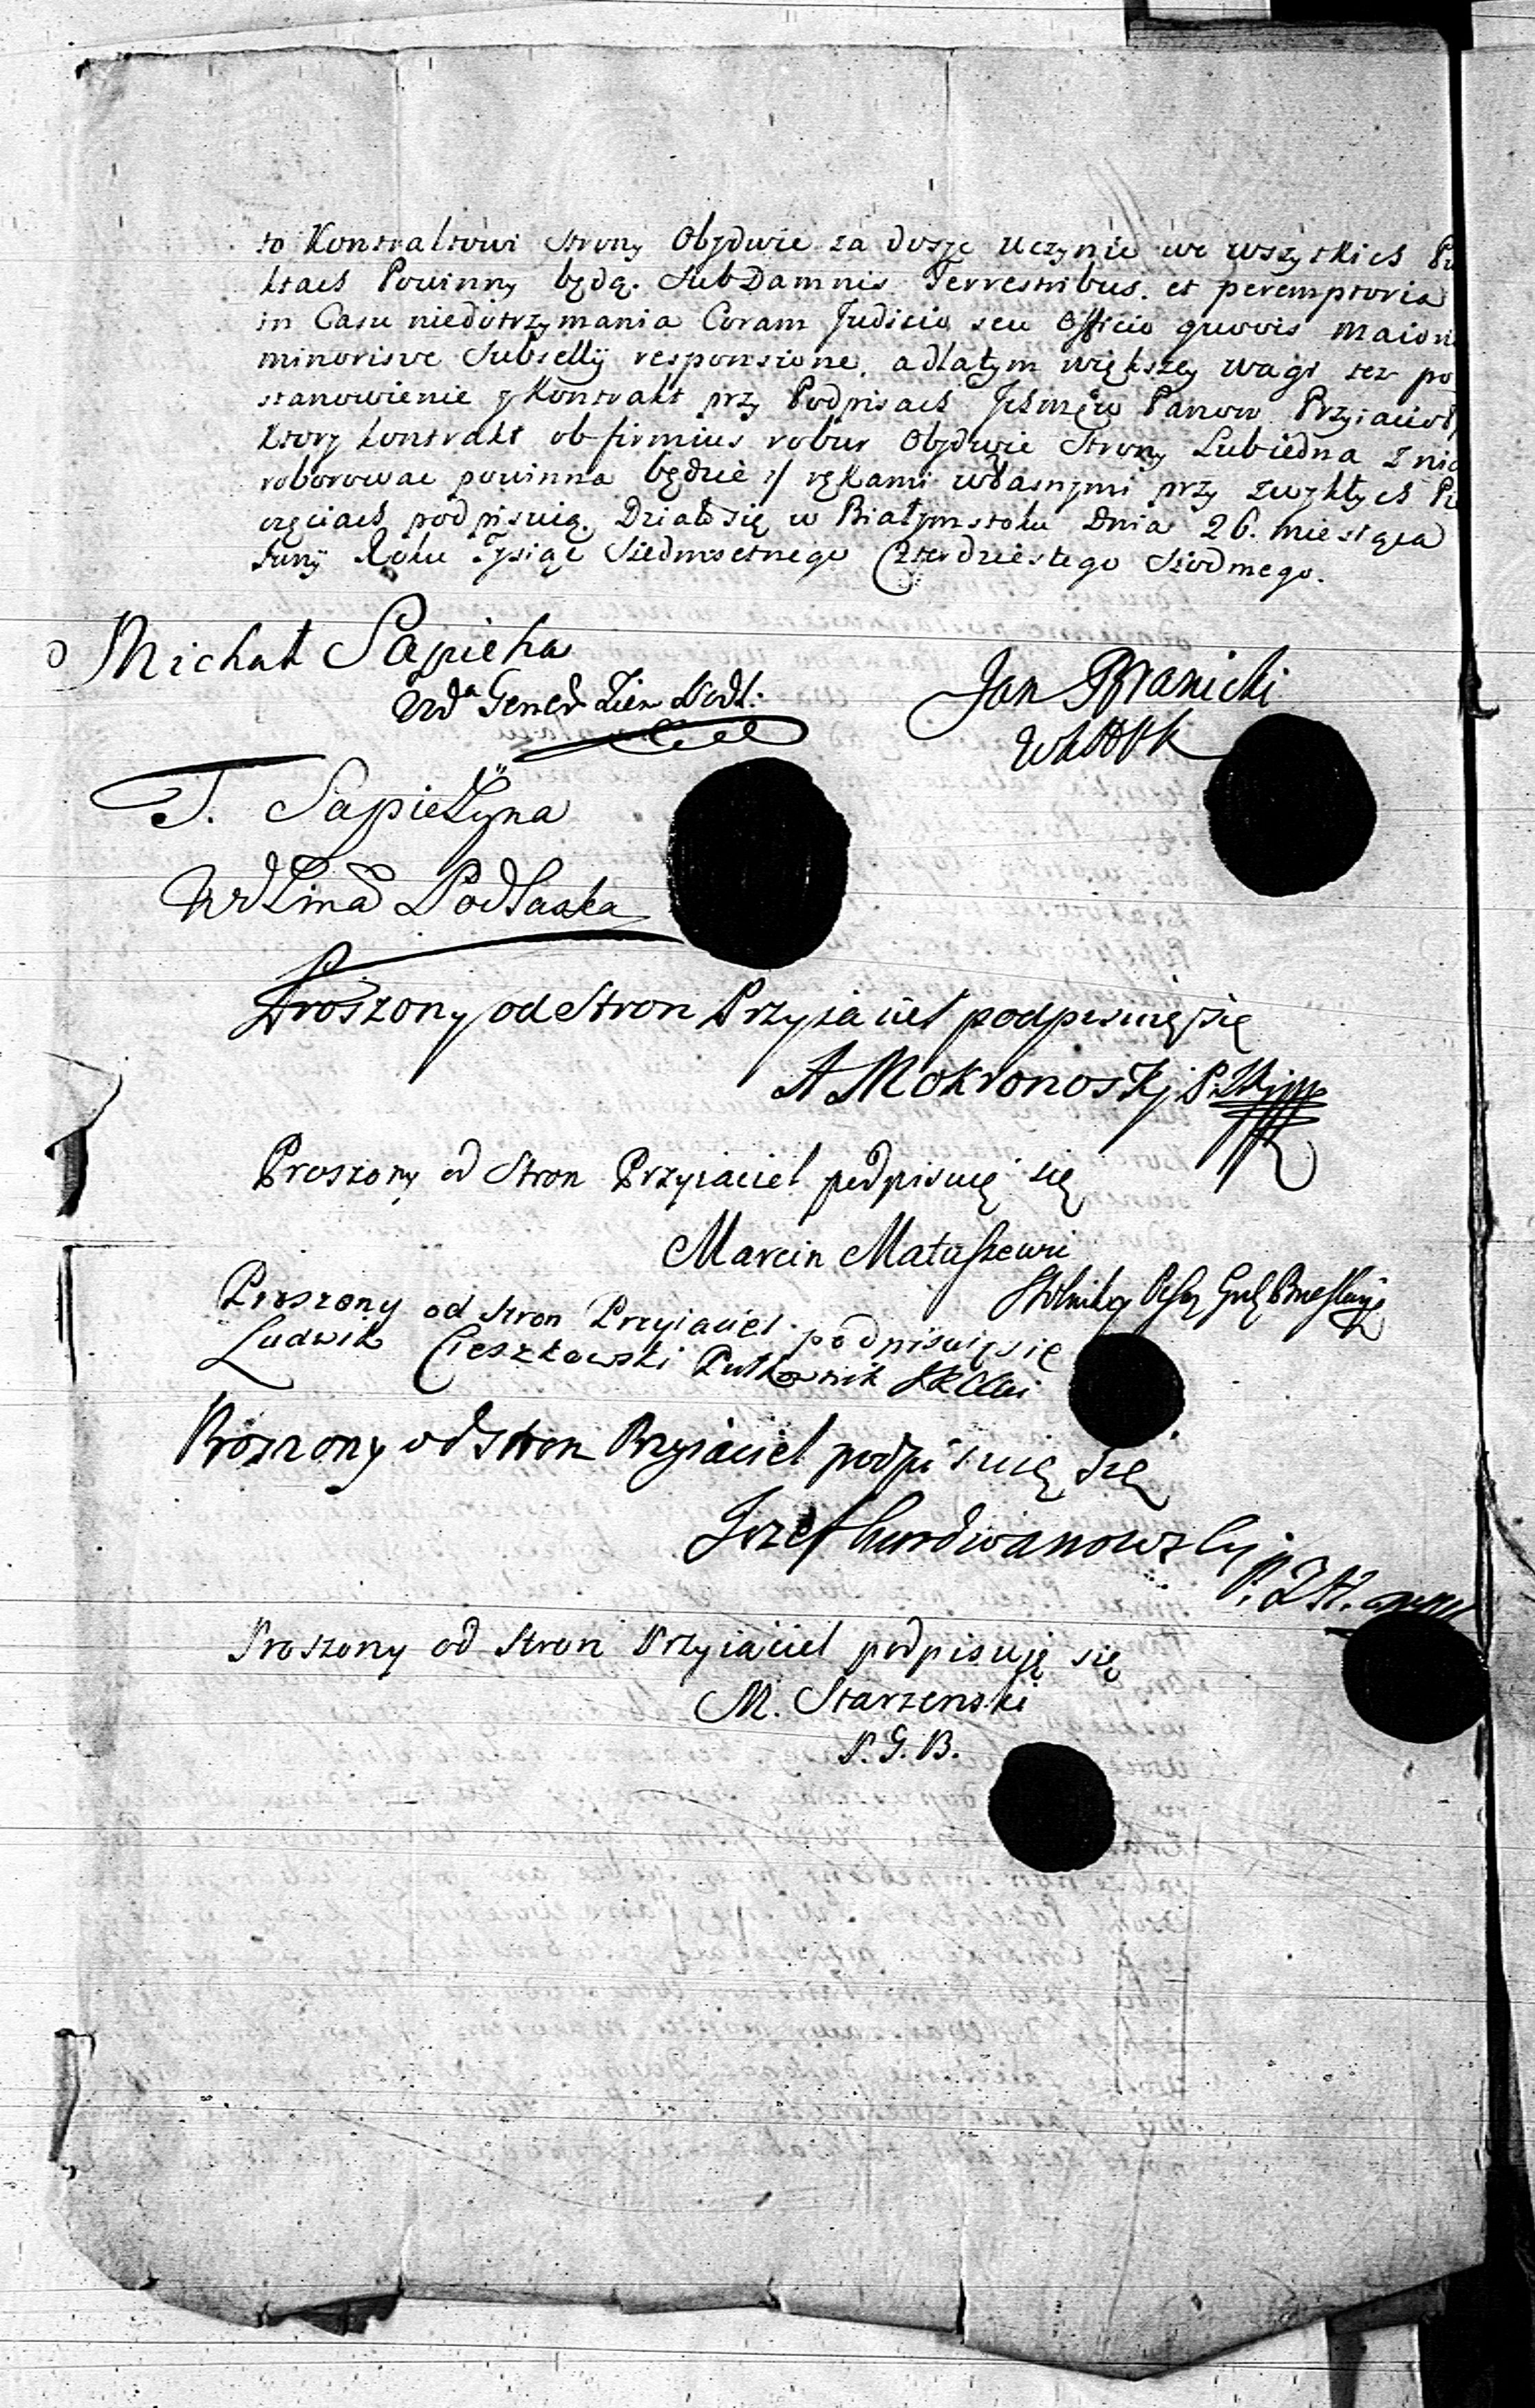 to Kontraktowi Strony Obydwie za dosyc uczynić we wszytkich Pu
ktach Powinny będą. Sub Damnis Terrestribus. et peremptoria
in Casu niedotrzymania Coram Judicio seu Officio quovis maioris
minorisve Subsellij responsione. a dla tym większey wagi ter po
stanowienie y Kontrakt przy Podpisach Panow Przyiacioł
Ktory kontrakt ob firmius robur Obydwie Strony Lub iedna z nich
roborowac powinna będzie rękami własnymi przy zwykłych Pie
częciach podpisuią. Działo się w Białymstoku Dnia 26. miesiąca
Juny Roku Tysiąc Siedmsetnego Czterdziestego Siodmego.
Michał Sapieha
Wda Gener Ziem Podl:
Jan Branicki
T. Sapieżyna
Podlaska
Proszony od Stron Przyiaciel podpisuię się
A Mokronoski
Proszony od Stron Przyiaciel podpisuię się
Marcin Matuszewic
Stolnikowicz
Proszony od stron Przyiaciel podpisuię się
Ludwik Cieszkowski Pułkownik
Proszony od stron Przyiaciel podpisuię się
Jozef Kurdwanowsky
Proszony od Stron Przyiaciel podpisuię się
M. Starzenski
P. G. B.